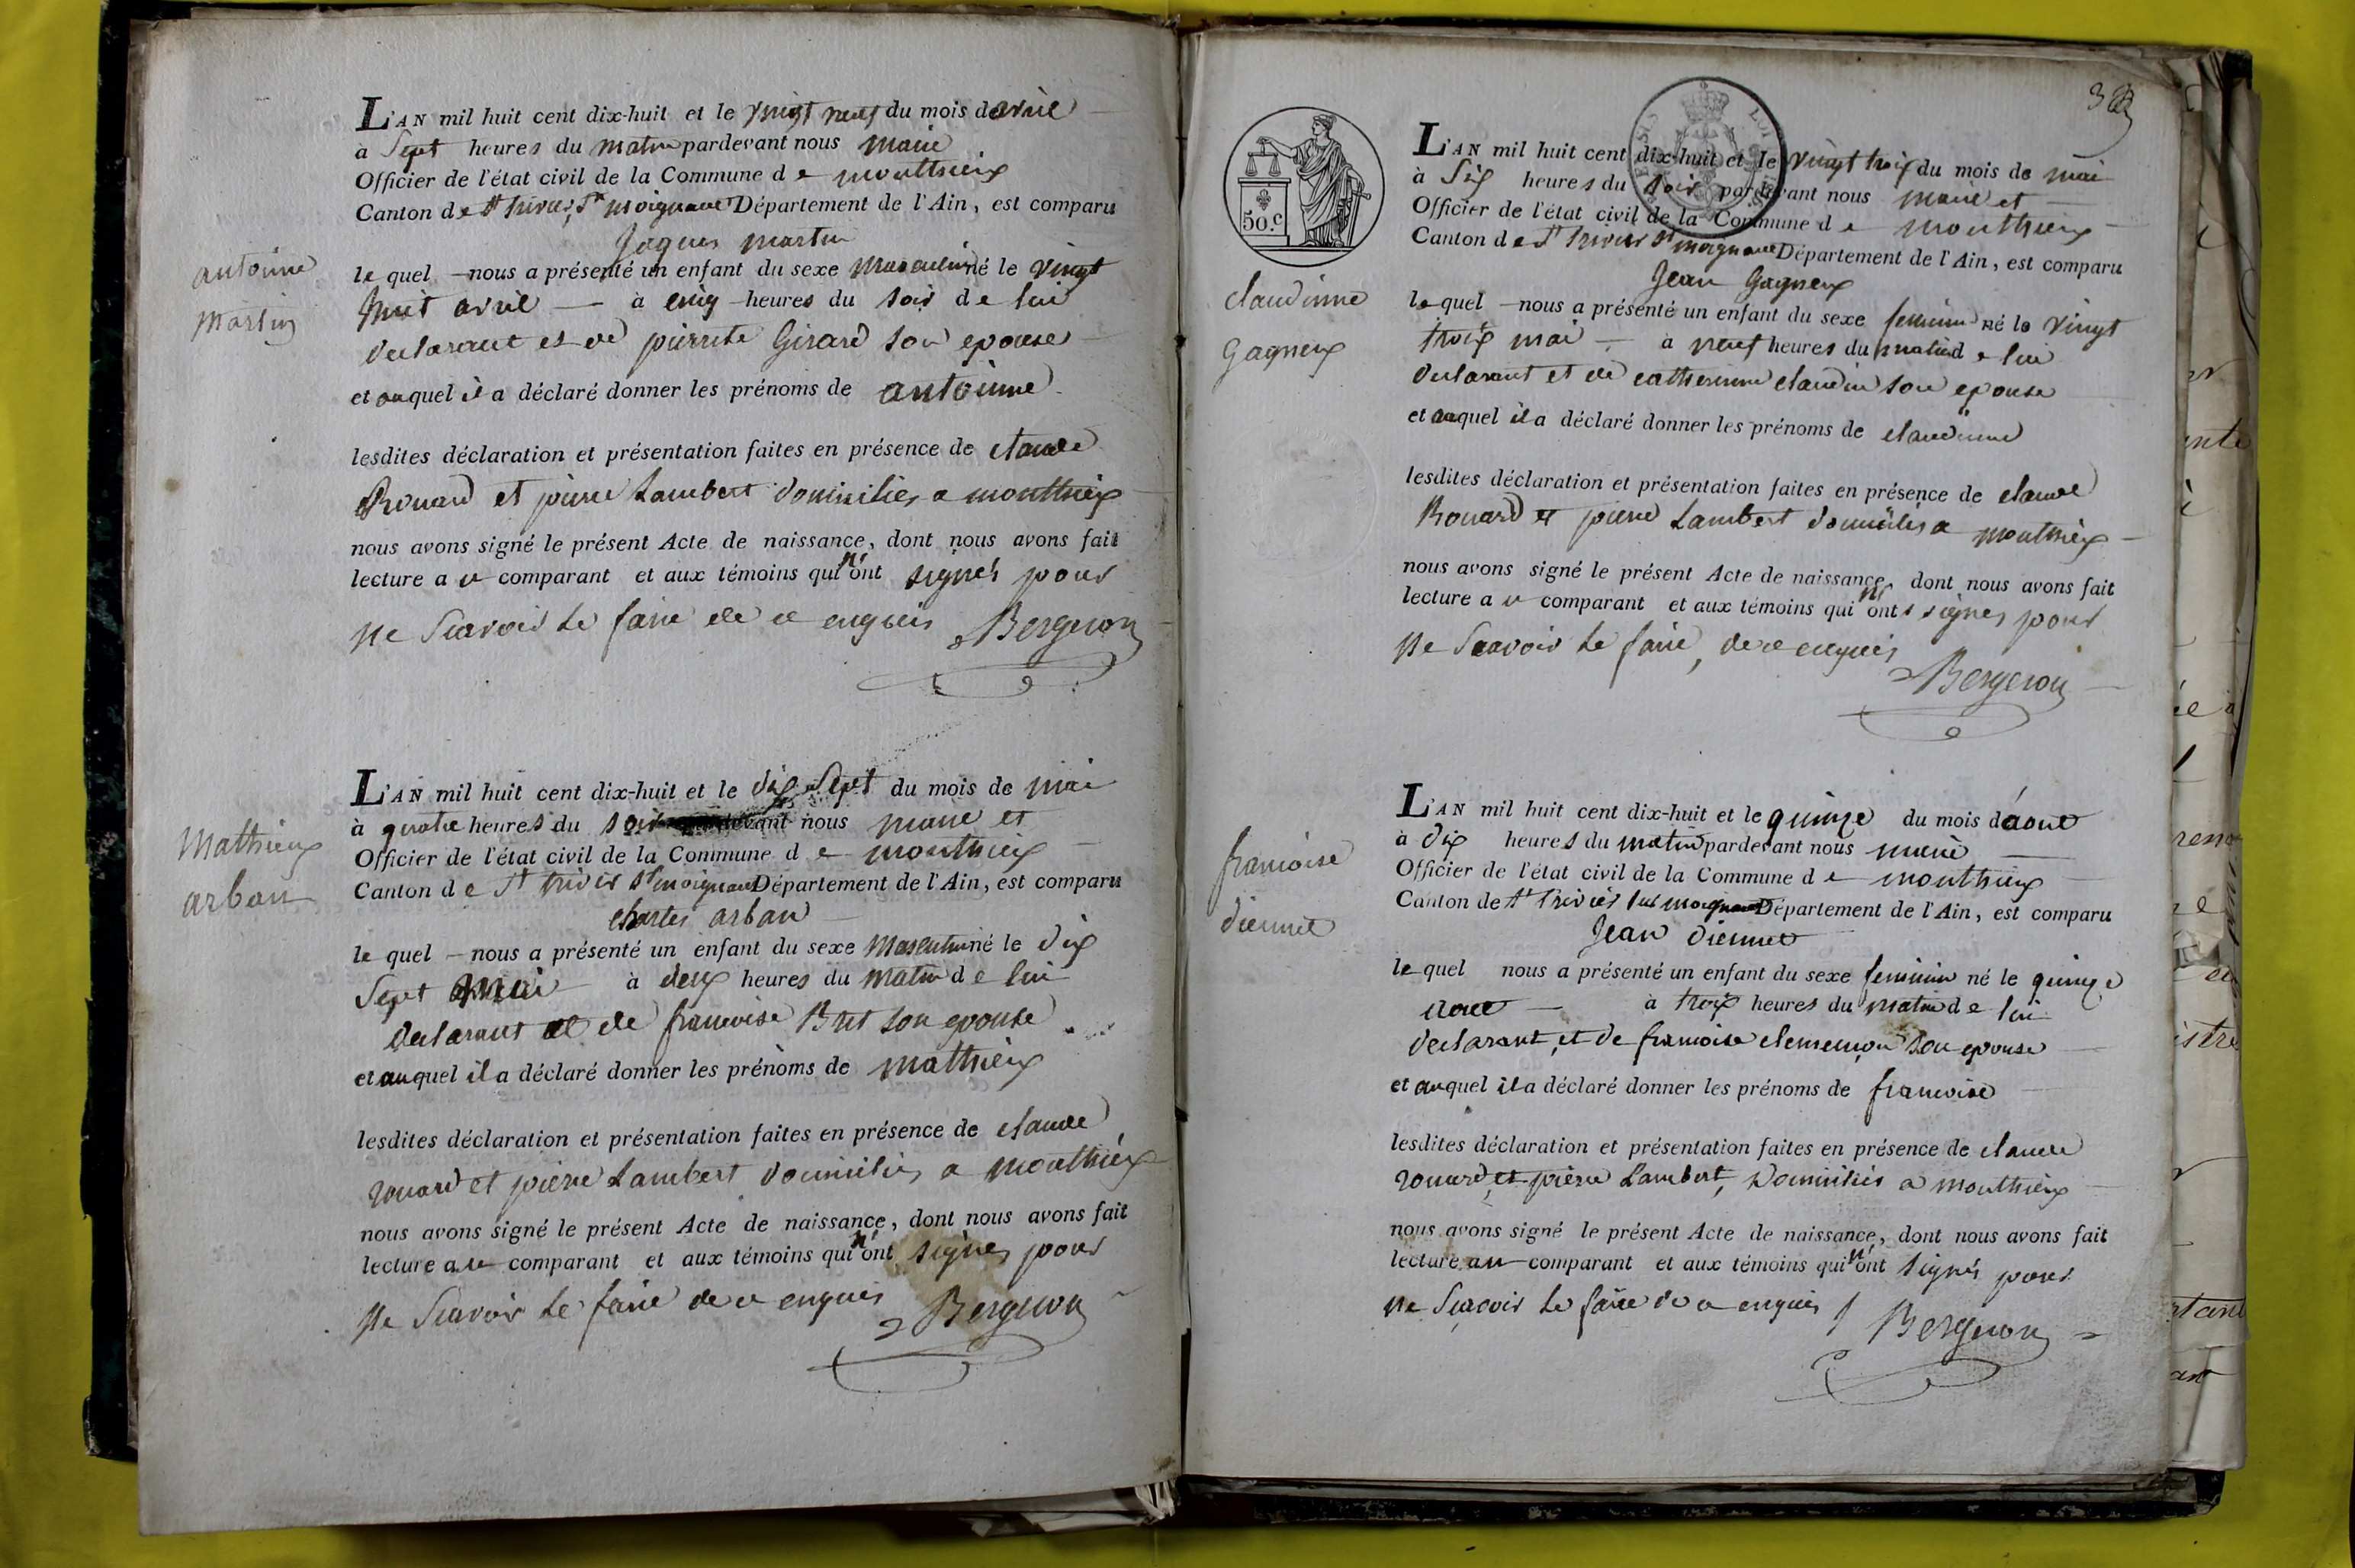 L'AN mil huit cent dix-huit et le vingt neuf du mois de avril
à Sept heures du matin pardevant nous maire
Officier de l'état civil de la Commune de monthieux
Canton de St trivier, Sr moignans Département de l'Ain, est comparu
Jaques martin
antoinne
martin
le quel nous a présenté un enfant du sexe masculin né le vingt
huit avril à cinq heures du soir de lui
declarant et de pierrete Girard son epouse
et auquel il a déclaré donner les prénoms de antoinne
lesdites déclaration et présentation faites en présence de claude
Rouard et pierre Lambert domiciliés a monthieux
nous avons signé le présent Acte de naissance, dont nous avons fait
lecture au comparant et aux témoins qui n'ont signés pour
ne Scavoir le faire de ce enquis Bergeron
L'AN mil huit cent dix-huit et le dix Sept du mois de mai
à quatre heures du soir pardevant nous maire et
Officier de l'état civil de la Commune de monthieux
Canton de St trivier Sr moignans Département de l'Ain, est comparu
charles arban
Mathieux
arban
le quel nous a présenté un enfant du sexe masculin né le dix
Sept mai à deux heures du matin de lui
declarant et de francoise Bret son epouse
et auquel il a déclaré donner les prénoms de mathieux
lesdites déclaration et présentation faites en présence de claude
rouard et pierre Lambert domiciliés a monthieux
nous avons signé le présent Acte de naissance, dont nous avons fait
lecture au comparant et aux témoins qui n'ont signés pour
ne Scavoir le faire de ce enquis Bergeron
50.c
L'AN mil huit cent dix-huit et le vingt trois du mois de mai
à Six heures du soir pardevant nous maire et
Officier de l'état civil de la Commune de monthieux
Canton de St trivier Sr moignans Département de l'Ain, est comparu
Jean Gagneux
claudinne
gagneux
le quel nous a présenté un enfant du sexe feminin né le vingt
trois mai à neuf heures du matin de lui
declarant et de catherinne claudin son epouse
et auquel il a déclaré donner les prénoms de claudinne
lesdites déclaration et présentation faites en présence de claude
Rouard et pierre Lambert domiciliés a monthieux
nous avons signé le présent Acte de naissance, dont nous avons fait
lecture au comparant et aux témoins qui n'ont signés pour
ne Scavoir le faire, de ce enquis
Bergeron
L'AN mil huit cent dix-huit et le quinze du mois d'aout
à dix heures du matin pardevant nous maire
Officier de l'état civil de la Commune de monthieux
Canton de St trivier sur moignans Département de l'Ain, est comparu
Jean diennet
francoise
diennet
le quel nous a présenté un enfant du sexe feminin né le quinze
aout à trois heures du matin de lui
declarant, et de francoise clemençon son epouse
et auquel il a déclaré donner les prénoms de francoise
lesdites déclaration et présentation faites en présence de claude
rouard, et pierre Lambert, Domiciliés a monthieux
nous avons signé le présent Acte de naissance, dont nous avons fait
lecture au comparant et aux témoins qui n'ont signés pour
ne Scavoir le faire de ce enquis Bergeron